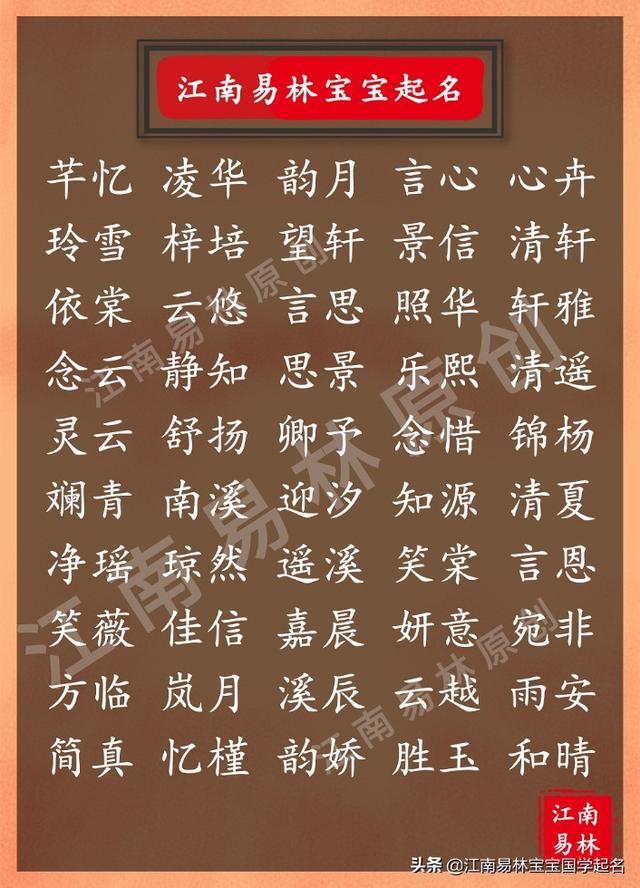 江南易林宝宝起名
芊忆 凌华 韵月 言心 心卉
玲雪 梓培 望轩 景信 清轩
依棠 云悠 言思 照华 轩雅
念云 静知 思景 乐熙 清遥
灵云 舒扬 卿予 念惜 锦杨
斓青 南溪 迎汐 知源 清夏
净瑶 琼然 遥溪 笑棠 言恩
笑薇 佳信 嘉晨 妍意 宛非
方临 岚月 溪辰 云越 雨安
简真 忆槿 韵娇 胜玉 和晴
江南易林原创
江南易林原创
江南易林原创
江南
易林
头条 @江南易林宝宝国学起名